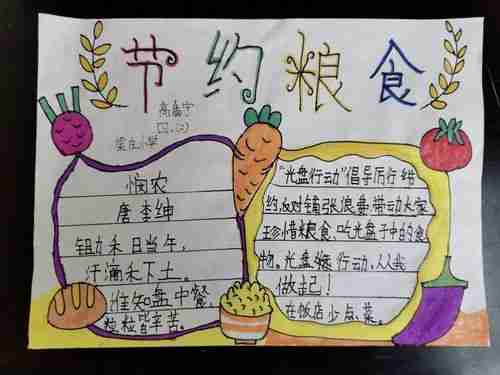 节约粮食
高嘉宇
梁庄小学
悯农
唐李绅
锄禾日当午，
汗滴禾下土。
谁知盘中餐，
粒粒皆辛苦。
"光盘行动"倡导厉行节
约，反对铺张浪费，带动大家
珍惜粮食、吃光盘子中的食
物。光盘行动，从我
做起！
在饭店少点菜。